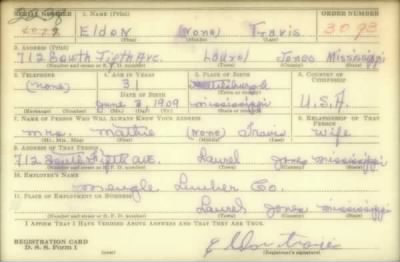 SERIAL NUMBER 1. NAME (Print) ORDER NUMBER
Eldon (none) Travis
2. ADDRESS (Print)
712 South Fifth Ave. Laurel Jones Mississippi
(Number and street or R. F. D. number) (Town) (County) (State)
3. TELEPHONE 4. AGE IN YEARS 5. PLACE OF BIRTH 6. COUNTRY OF CITIZENSHIP
(none) 31
DATE OF BIRTH (Town or county)
June 3, 1909 Mississippi U.S.A.
(Exchange) (Number) (Mo.) (Day) (Yr.) (State or country)
7. NAME OF PERSON WHO WILL ALWAYS KNOW YOUR ADDRESS 8. RELATIONSHIP OF THAT PERSON
Mrs. Mattie (none) Travis Wife
(Mr., Mrs., Miss) (First) (Middle) (Last)
9. ADDRESS OF THAT PERSON
712 South Fifth Ave. Laurel Jones Mississippi
(Number and street or R. F. D. number) (Town) (County) (State)
10. EMPLOYER'S NAME
Lumber Co.
11. PLACE OF EMPLOYMENT OR BUSINESS
Laurel Jones Mississippi
(Number and street or R. F. D. number) (Town) (County) (State)
I AFFIRM THAT I HAVE VERIFIED ABOVE ANSWERS AND THAT THEY ARE TRUE.
REGISTRATION CARD
D. S. S. Form 1
(Registrant's signature)